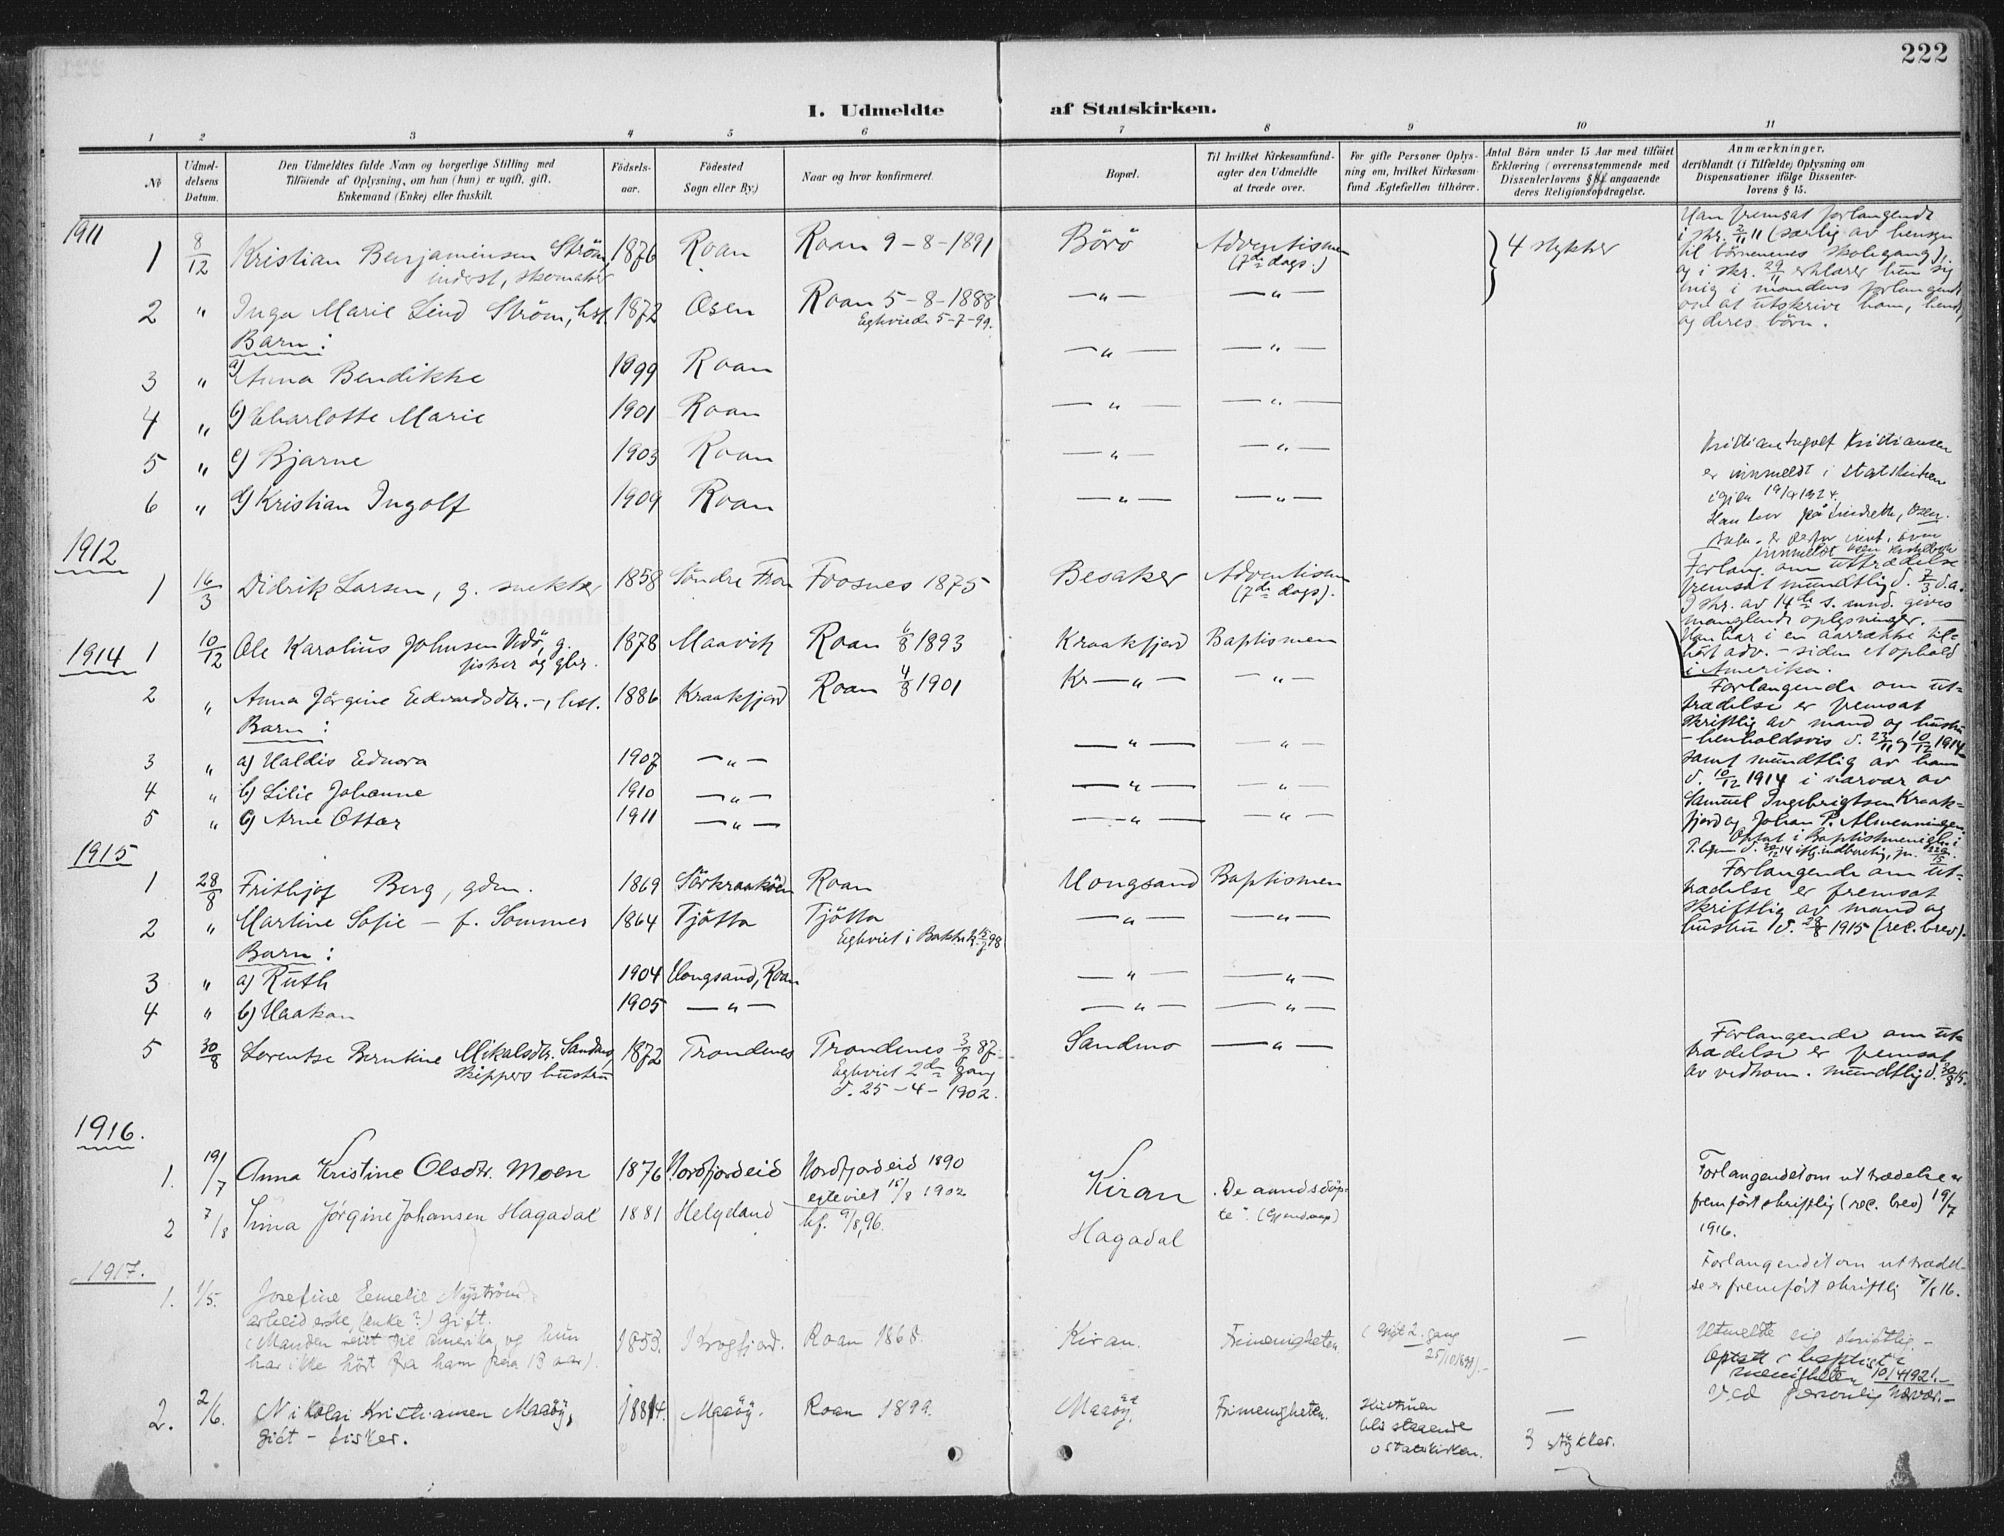 222
I. Udmeldte af Statskirken.
1 2 3 4 5 6 7 8 9 10 11
№
Udmel-
delsens
Datum.
Den Udmeldtes fulde Navn og borgerlige Stilling med
Tilföiende af Oplysning, om han (hun) er ugift, gift,
Enkemand (Enke) eller fraskilt.
Födsels-
aar.
Födested
Sogn eller By.)
Naar og hvor konfirmeret.
Bopæl.
Til hvilket Kirkesamfund-
agter den Udmeldte
at træde over.
For gifte Personer Oplys-
ning om, hvilket Kirkesam-
fund Ægtefællen tilhörer.
Antal Börn under 15 Aar med tilföiet
Erklæring (overensstemmende med
Dissenterlovens § angaaende
deres Religionsopdragelse.
Anmærkninger,
deriblandt (i Tilfælde) Oplysning om
Dispensationer ifölge Dissenter-
lovens § 15.
1911
1 8/12 Kristian Benjaminsen Ström, 1876 Roan Roan 9-8-1891 Börö Adventismen 4 stykker
inderst, skomaker (7de dags.)
2 " Inga Marie Lind Ström, hst. 1872 Osen Roan 5-8-1888 —"— —"—
Eghviede 5-7-99.
Barn:
3 " a) Anna Bendikke 1899 Roan —"— —"—
4 " b) Charlotte Marie 1901 Roan —"— —"—
5 " c) Bjarne 1903 Roan —"— —"—
6 " Kristian Ingolf 1909 Roan —"— —"—
Han fremsat forlangende
i skr. 2/11 11 (særlig av hensyn
til børnenes skolegang).
og i skr. 29/11 erklærer hun sig
enig i mandens forlangende
om at utskrive ham, hende,
og deres börn.
Kristian Ingolf Kristiansen
er innmeldt i statskirken
igjen 19/9 1924.
1912
1 16/3 Didrik Larsen, g. snekker 1858 Söndre Fron Fosnes 1875 Besaker Adventismen
(7de dags).
Forlang. om uttrædelse
fremsat mundtlig d. 7/3 d.a.
I skr. av 14de s. mnd. gives
manglende oplysninger.
Han har i en aarrække til-
hört adv. - siden et ophold
i Amerika.
1914 1 10/12 Ole Karolius Johnsen g. 1878 Maavik Roan 6/8 1893 Kraakfjord Baptismen
fisker og gbr.
2 " Anna Jörgine Edvardsdtr. -, hst. 1886 Kraakfjord Roan 4/8 1901 Kr—"— —"—
Barn:
3 " a) Haldis Ednora 1907 —"— —"— —"—
4 " b) Lilie Johanne 1910 —"— —"— —"—
5 " c) Arne Ottar 1911 —"— —"— —"—
Forlangende om ut-
trædelse er fremsat
skriftlig av mand og hustru
- henholdsvis d. 23/11 og 10/12 1914
samt mundtlig av ham
d. 10/12 1914 i nærvær av
Samuel Ingebrigtsen Kraak-
fjord og Johan P. Almenningen.
1915
1 28/8 Frithjof Berg, gdm. 1869 Sörkraaköen Roan Hongsand Baptismen
2 " Martine Sofie - f. Sommer 1864 Tjötta Tjötta —"— —"—
Barn:
3 " a) Ruth 1904 Hongsand, Roan —"— —"—
4 " b) Haakon 1905 —"— —"— —"—
Forlangende om ut-
trædelse er fremsat
skriftlig av mand og
hustru d. 28/8 1915 (rec. brev).
5 30/8 Lorentse Berntine Mikalsdtr. Sandmo, 1872 Trondenes Trondenes 87 Sandmo —"—
skippers hustru
Eghviet 2den gang
d. 25-4-1902.
Forlangende om ut-
trædelse er fremsat
av vedkom. mundtlig d. 30/8 15.
1916.
1. 19/7 Anna Kristine Olsdtr. Moen 1876 Nordfjordeid Nordfjordeid 1890 Kiran "De aandsdöp-
egteviet 15/8 1902 te".
2 7/8 Jörgine Johansen Hagadal 1881 Helgeland kf. 9/8, 96. Hagadal
Forlangendet om uttrædelse er
fremfört skriftlig (rec. brev) 19/7
1916.
Forlangendet om uttrædel-
se er fremfört skriftlig 7/8 16.
1917.
1. 1/5. Josefine Emelie Nyström,
arbeiderske, (enke?) gift.
(Manden reist til Amerika, og hun 1853. Krogfjord. Roan 1868. Kiran. Frimenigheten. (gift 2. gang —
har ikke hört fra ham paa 13 aar).
Utmeldte sig skriftlig. -
2. 2/6. Nikolai Kristiansen Maaöy, 1884. Maaöy. Roan 1899. Maaöy. Frimenigheten. Hustruen —
gift - fisker. 3 stykker.
blir staaende
i statskirken.
Ved personlig nærvær. -